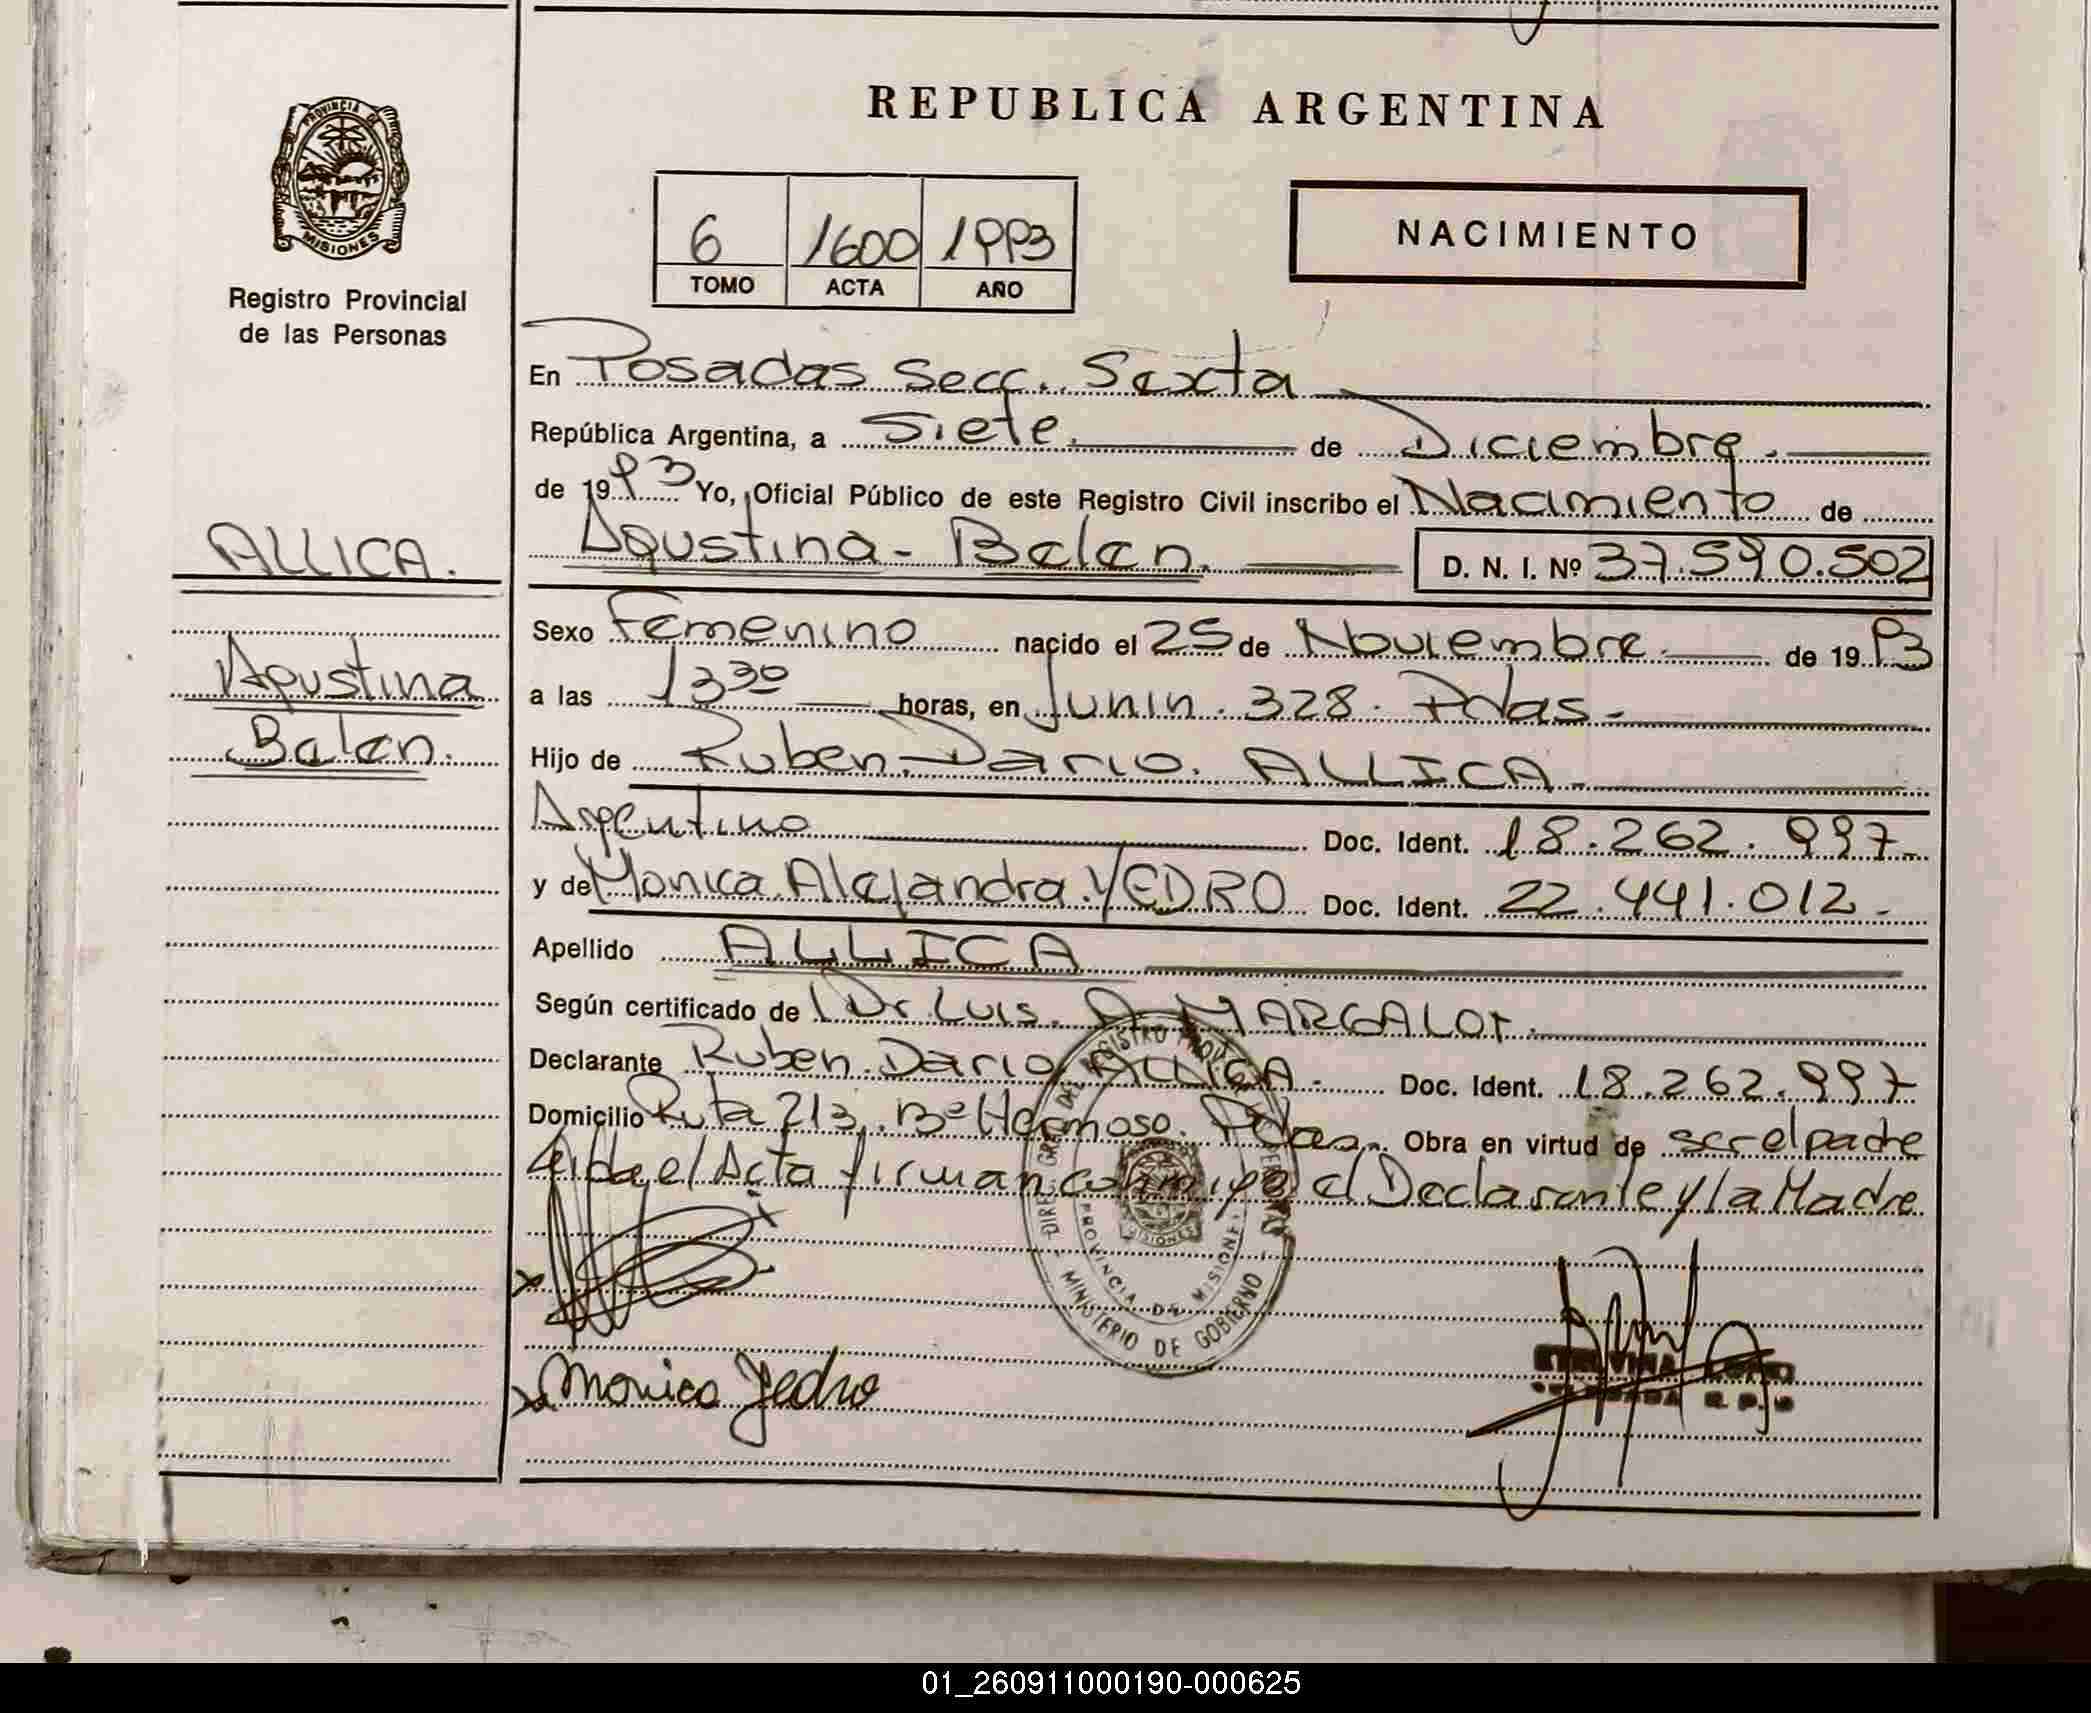 REPUBLICA ARGENTINA
PROVINCIA DE
MISIONES
Registro Provincial
de las Personas
6 1600 1993
TOMO ACTA AÑO
NACIMIENTO
En Posadas Secc. Sexta
República Argentina, a Siete. de Diciembre.
de 1993 Yo, Oficial Público de este Registro Civil inscribo el Nacimiento de
ALLICA.
Agustina - Belen. D. N. I. Nº 37.590.502
Sexo Femenino nacido el 25 de Noviembre. de 1993
Agustina
Belen.
a las 13 30 horas, en Junin. 328. Pdas.
Hijo de Ruben. Dario. ALLICA.
Argentino Doc. Ident. 18.262.997
y de Monica. Alejandra. YEDRO Doc. Ident. 22.441.012.
Apellido ALLICA
Según certificado de Dr. Luis. A MARGALOT.
Declarante Ruben. Dario ALLICA. Doc. Ident. 18.262.997
Domicilio Ruta 213. Bº Hermoso. Pdas. Obra en virtud de ser el padre
Leida el Acta firman conmigo el Declarante y la Madre
DIREC. GRAL. DEL REGISTRO PROV. DE LAS PERSONAS
PROVINCIA DE MISIONES
MISIONES
MINISTERIO DE GOBIERNO
x
x Monica Yedro
R. P.
01_260911000190-000625